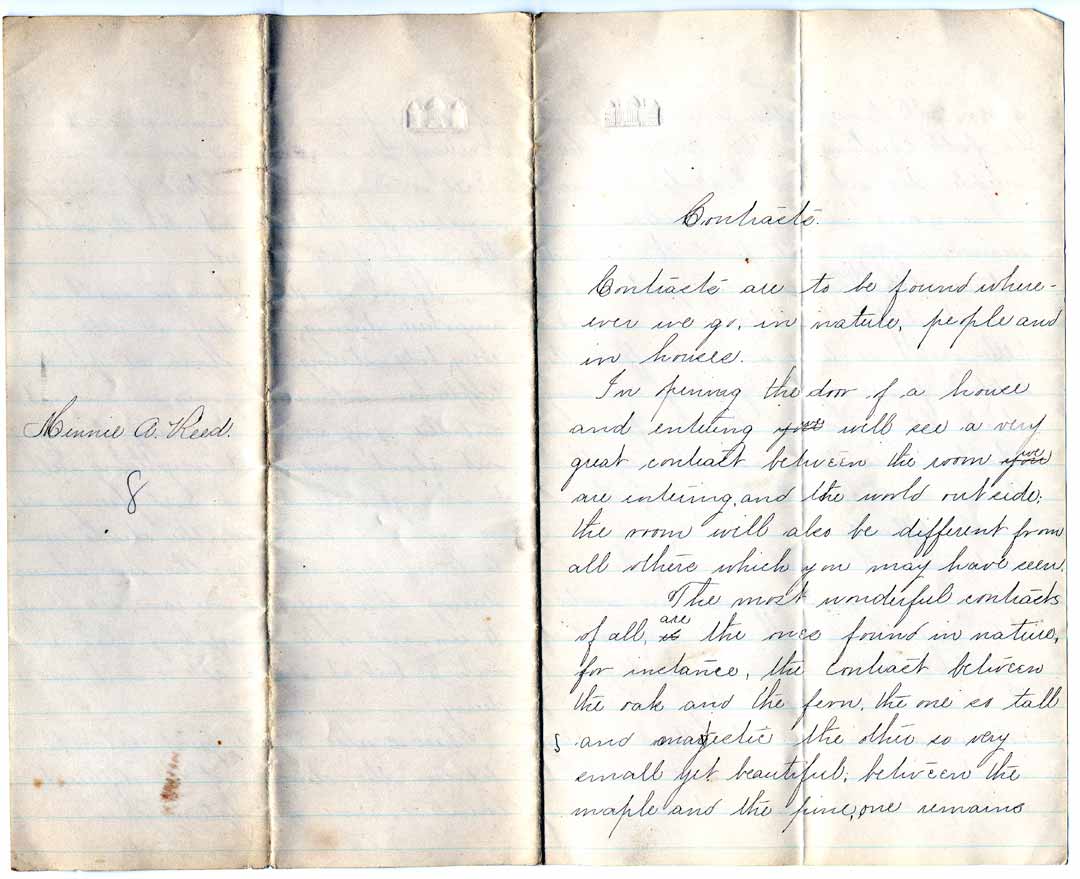 Minnie A. Reed.
8
Contrasts.
Contrasts are to be found where-
ever we go, in nature, people and
in houses.
In opening the door of a house
and entering we will see a very
great contrast between the room we
are entering, and the world outside;
the room will also be different from
all others which you may have seen.
The most wonderful contrasts
of all, are the ones found in nature,
for instance, the contrast between
the oak and the fern, the one so tall
and majestic the other so very
small yet beautiful; between the
maple and the pine, one remains